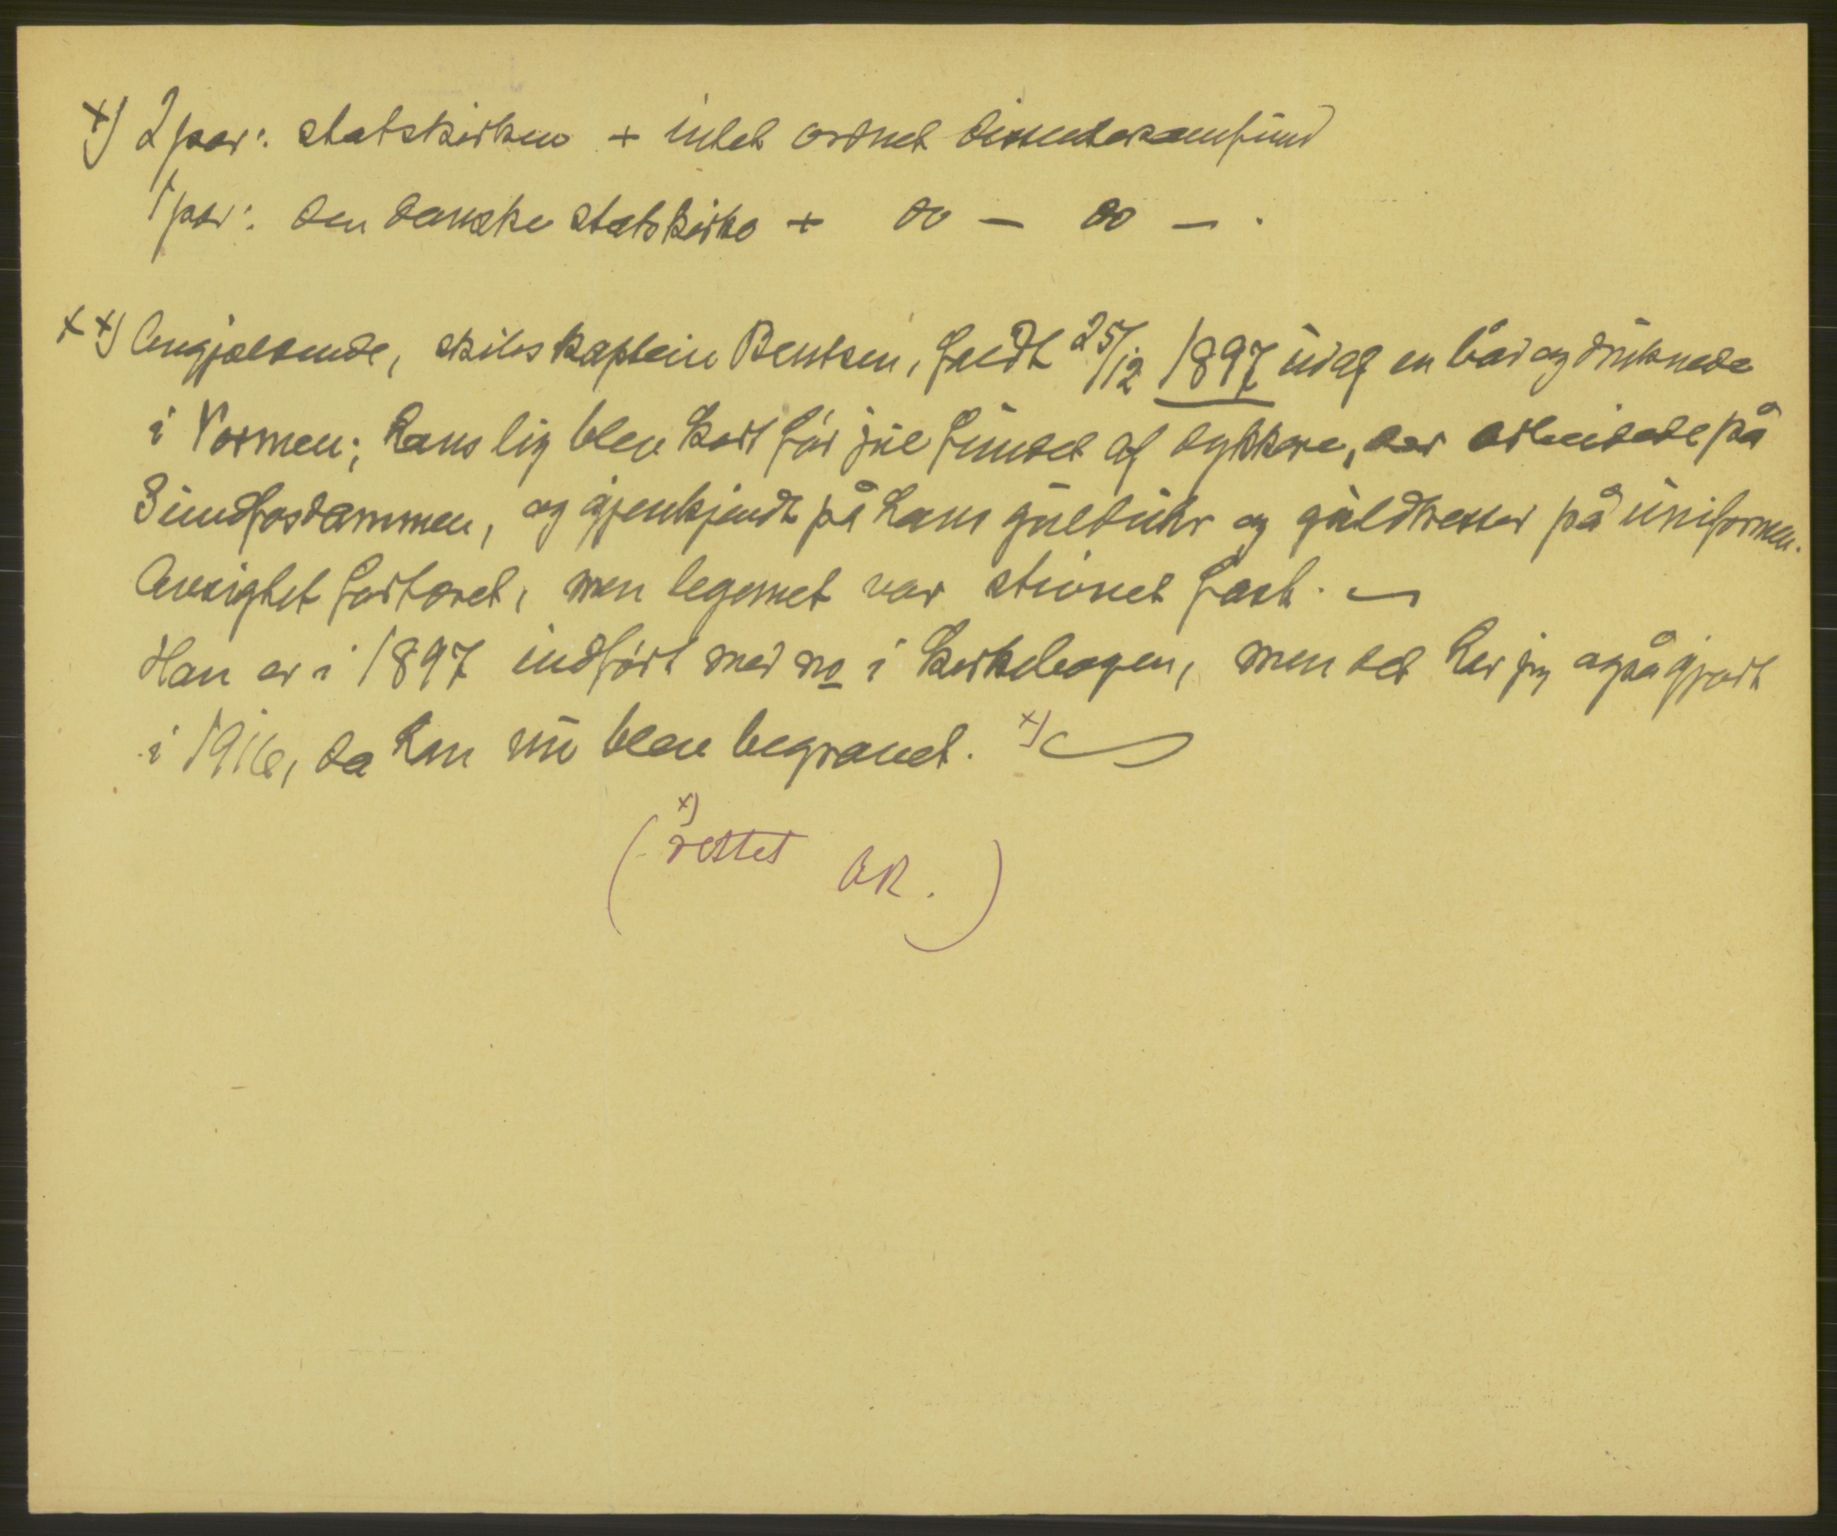 x) 2 par: statskirken + intet ordnet dissentersamfund
1 par: den danske statskirke + do — do — .
xx) Angjældende, skibskaptein Bentsen, faldt 25/12 1897 ud af en båd og druknede
i Vormen; hans lig blev kort før jul fundet af dykkere, der arbeidede på
Sundfosdammen, og gjenkjendt på hans guldur og guldtresser på uniformen.
Ansigtet fortæret, men legemet var stivnet fast. —
Han er i 1897 indført med no i kirkebogen, men det har jeg også gjort
i 1916, da han nu blev begravet. x)
( x) rettet AR. )